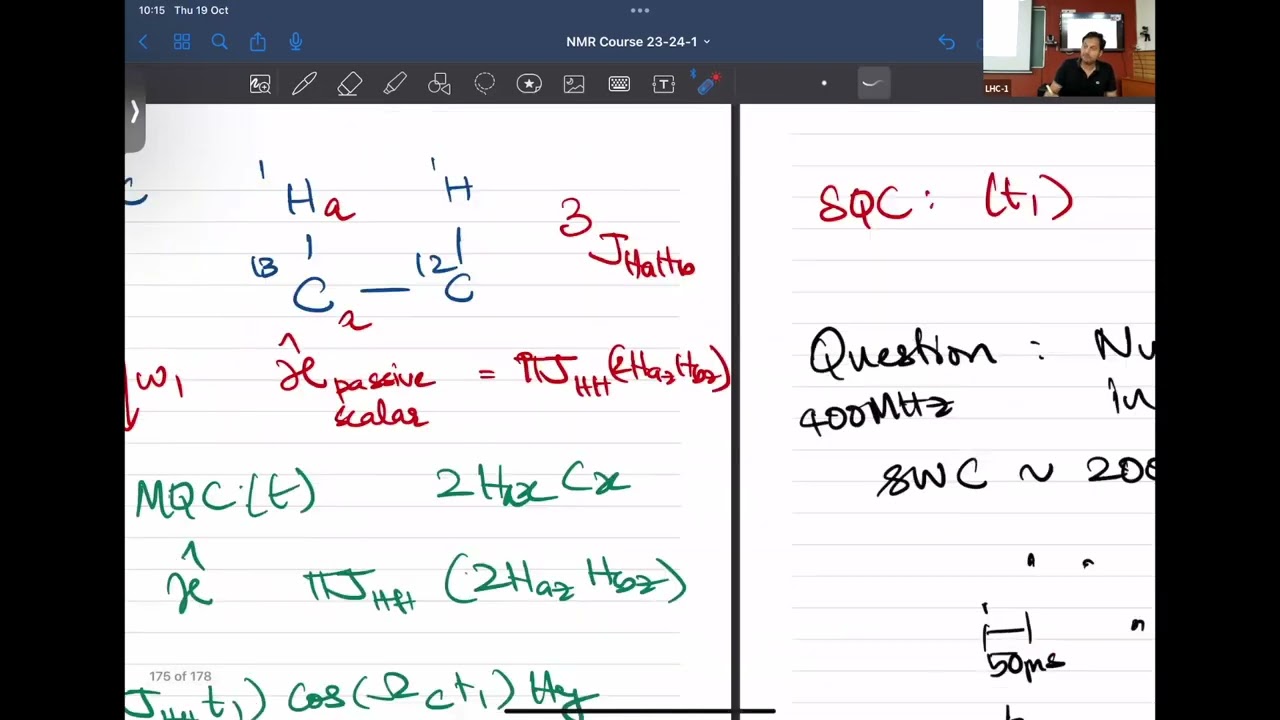 10:15 Thu 19 Oct
NMR Course 23-24-1
LHC-1
C
1Ha 1H
13C — 12C
a
3JHaHb
ω1 Ĥpassive scalar = πJHH(2HazHbz)
MQC:(t) 2HxCx
Ĥ πJHH (2Haz Hbz)
JHH t1) cos(ΩC t1) Hy
175 of 178
SQC: (t1)
Question :
400MHz
SWC ~ 200
50ms